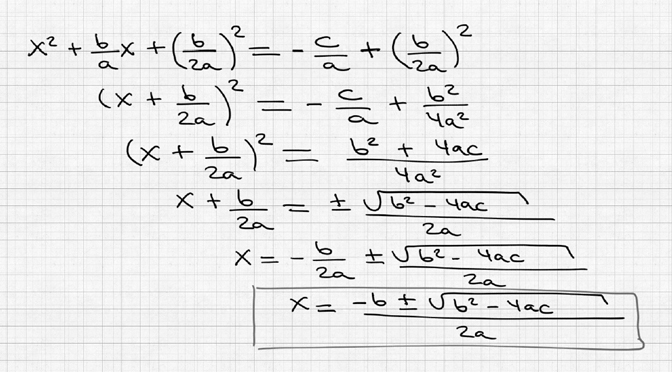 x² + b/a x + (b/2a)² = - c/a + (b/2a)²
(x + b/2a)² = - c/a + b²/4a²
(x + b/2a)² = b² + 4ac / 4a²
x + b/2a = ± √b² - 4ac / 2a
x = - b/2a ± √b² - 4ac / 2a
x = -b ± √b² - 4ac / 2a